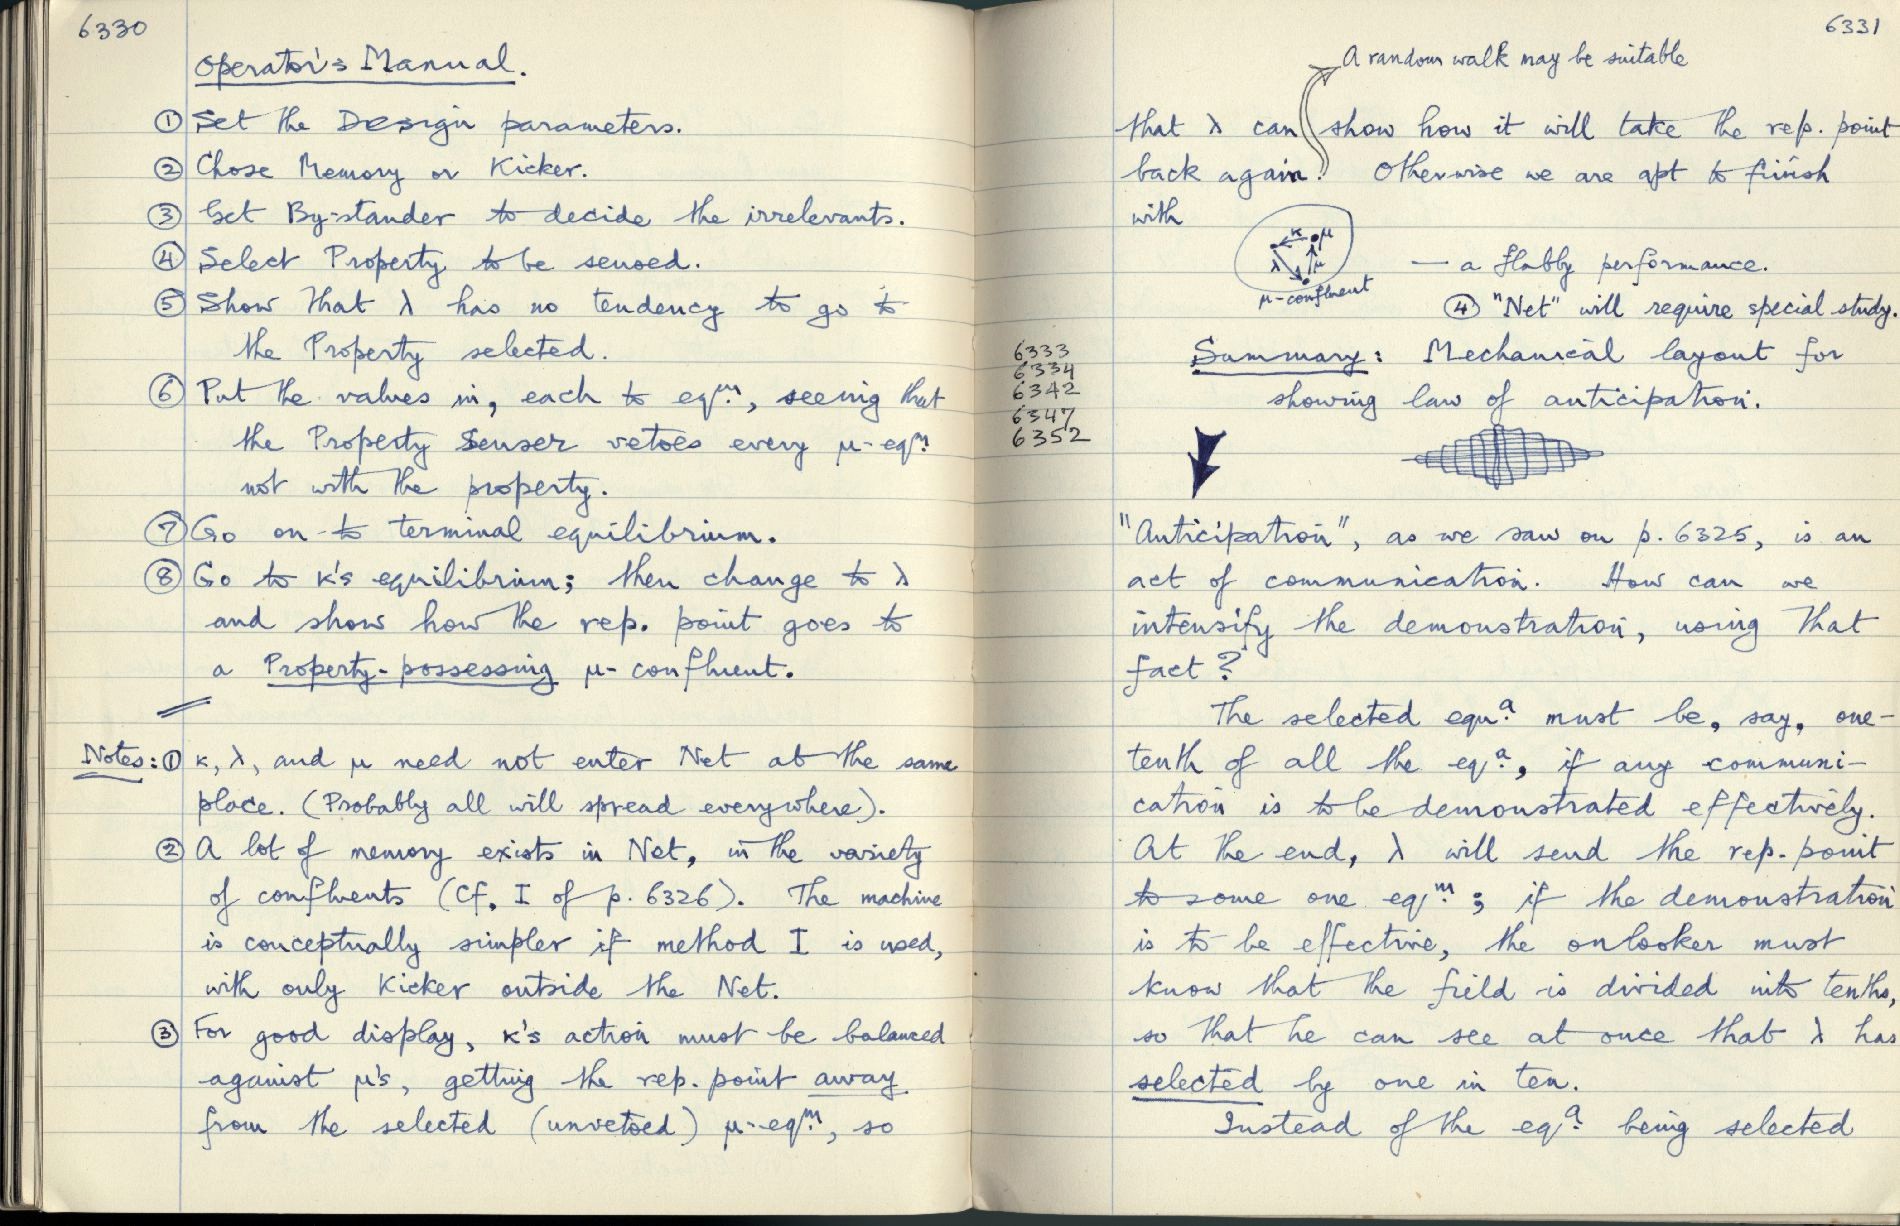 6330
Operator's Manual.
① Set the Design parameters.
② Chose Memory or Kicker.
③ Get By-stander to decide the irrelevants.
④ Select Property to be sensed.
⑤ Show that λ has no tendency to go to
the Property selected.
⑥ Put the values in, each to eqᵐ., seeing that
the Property Senser vetoes every μ-eqᵐ.
not with the property.
⑦ Go on to terminal equilibrium.
⑧ Go to κ's equilibrium; then change to λ
and show how the rep. point goes to
a Property-possessing μ-confluent.
Notes: ① κ, λ, and μ need not enter Net at the same
place. (Probably all will spread everywhere).
② A lot of memory exists in Net, in the variety
of confluents (Cf. I of p. 6326). The machine
is conceptually simpler if method I is used,
with only Kicker outside the Net.
③ For good display, κ's action must be balanced
against μ's, getting the rep. point away
from the selected (unvetoed) μ-eqᵐ., so
6331
A random walk may be suitable
that λ can show how it will take the rep. point
back again. Otherwise we are apt to finish
with
κ μ
λ μ
μ-confluent
— a flabby performance.
④ "Net" will require special study.
6333
6334
6342
6347
6352
Summary: Mechanical layout for
showing law of anticipation.
"Anticipation", as we saw on p. 6325, is an
act of communication. How can we
intensify the demonstration, using that
fact?
The selected equᵃ. must be, say, one-
tenth of all the eqᵃ., if any communi-
cation is to be demonstrated effectively.
At the end, λ will send the rep. point
to some one eqᵐ.; if the demonstration
is to be effective, the onlooker must
know that the field is divided into tenths,
so that he can see at once that λ has
selected by one in ten.
Instead of the eqᵃ. being selected